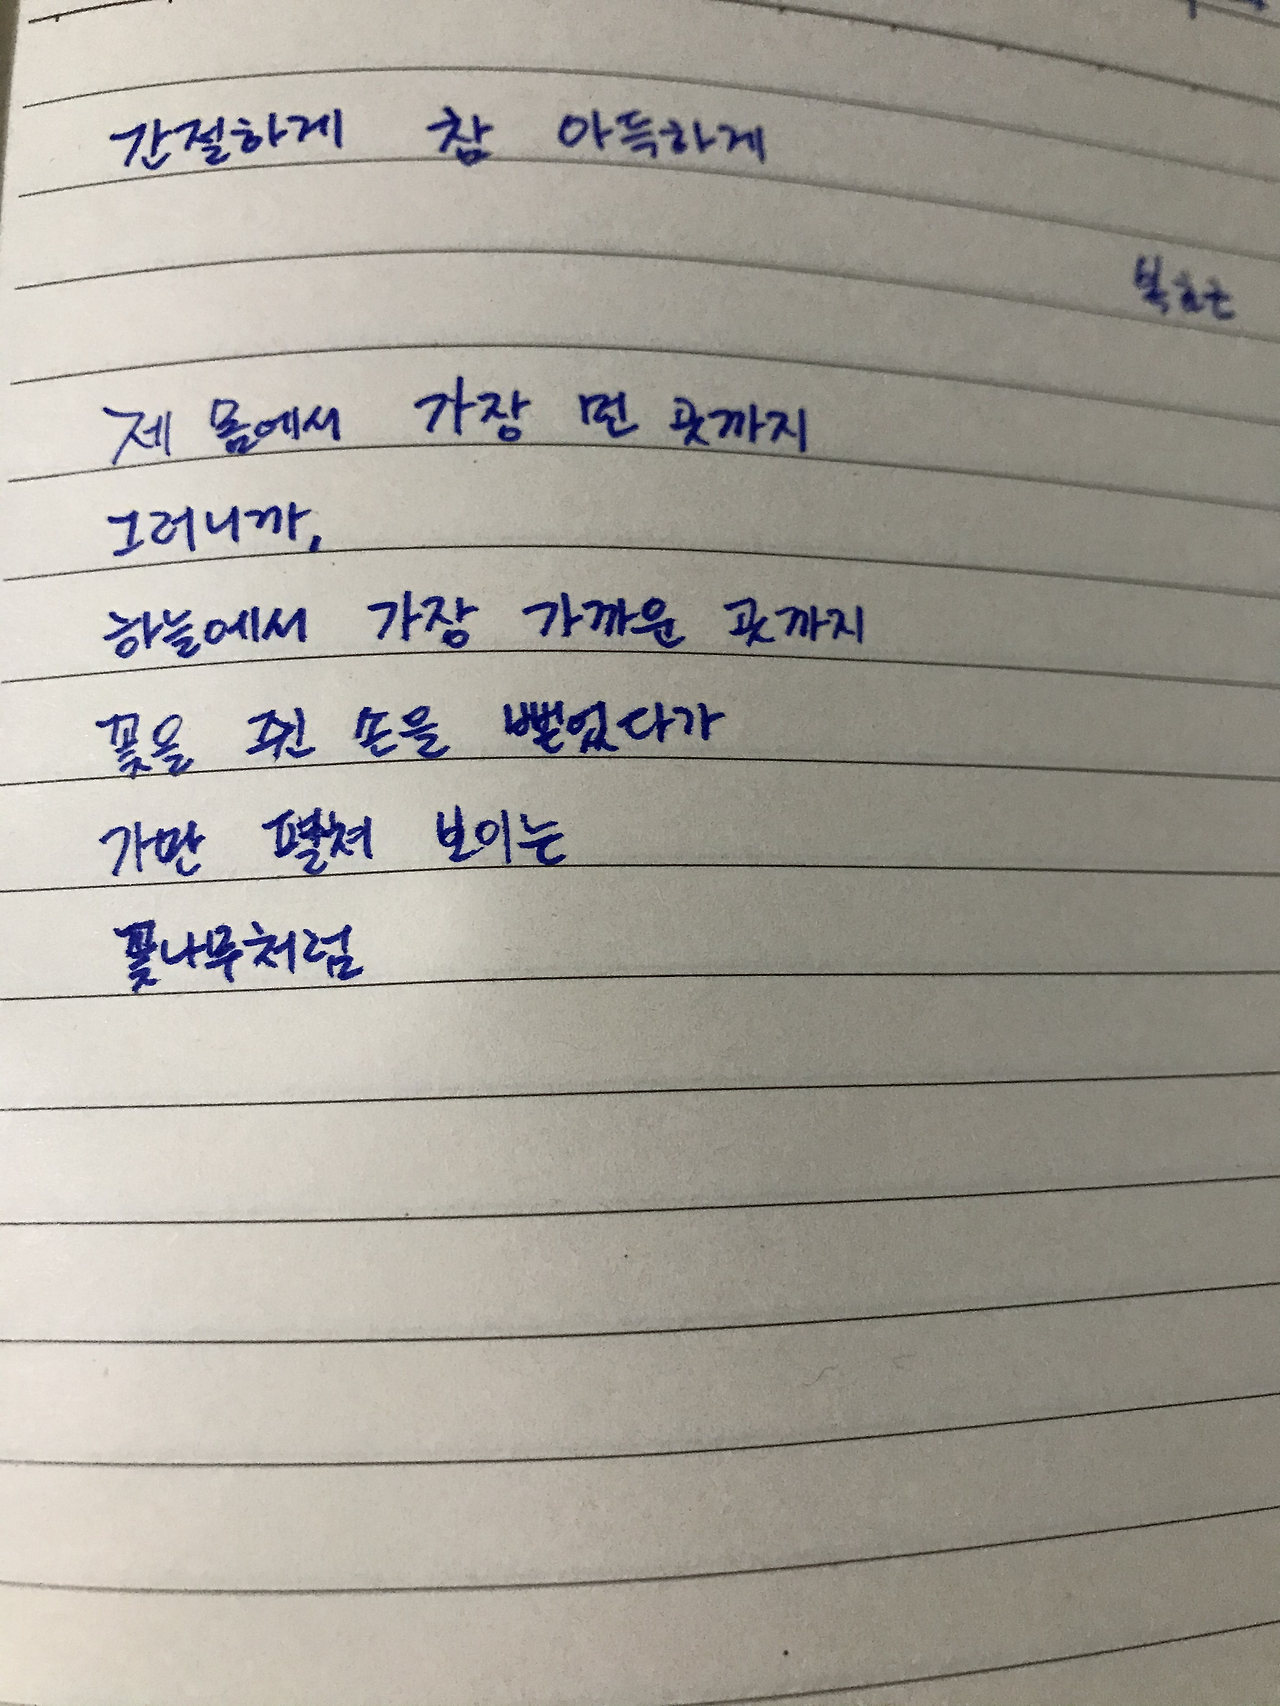 간절하게 참 아득하게
복효근
제 몸에서 가장 먼 곳까지
그러니까,
하늘에서 가장 가까운 곳까지
꽃을 쥔 손을 뻗었다가
가만 펼쳐 보이는
꽃나무처럼